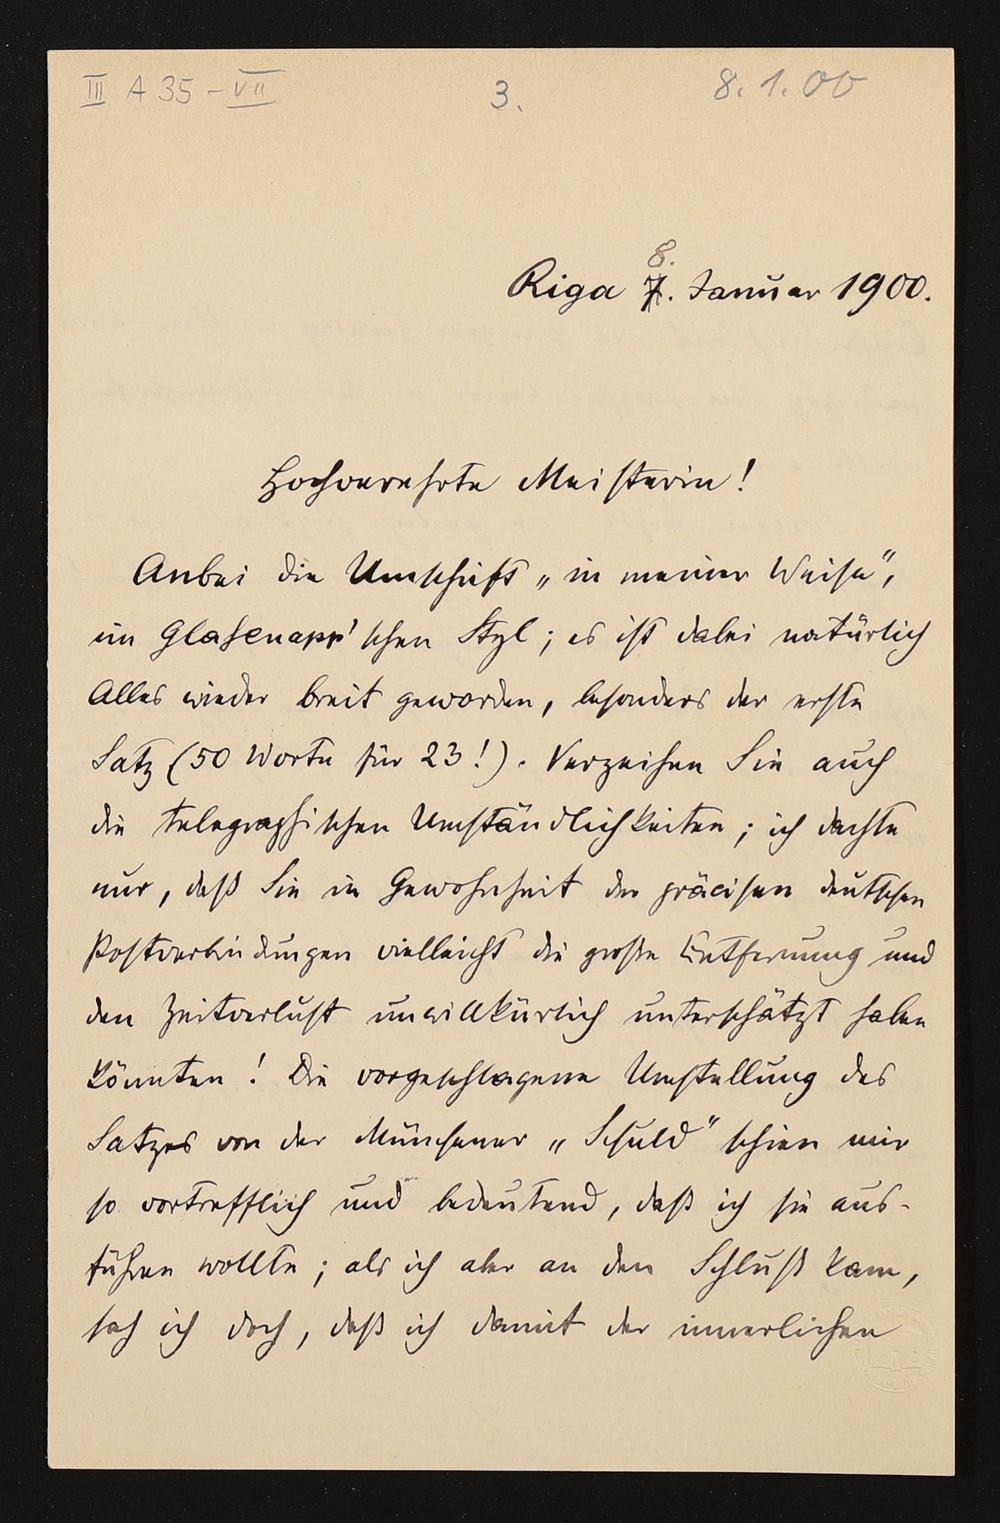 III A 35 - VII
3.
8. 1. 00
8.
Riga 7. Januar 1900.
Hochverehrte Meisterin!
Anbei die Umschrift „in meiner Weise",
im Glasenapp'schen Styl; es ist dabei natürlich
Alles wieder breit geworden, besonders der erste
Satz (50 Worte für 23!). Verzeihen Sie auch
die telegraphischen Umständlichkeiten; ich dachte
nur, daß Sie in Gewohnheit der präcisen deutschen
Postverbindungen vielleicht die große Entfernung und
den Zeitverlust unwillkürlich unterschätzt haben
könnten! Die vorgeschlagene Umstellung des
Satzes von der Münchener „Schuld" schien mir
so vortrefflich und bedeutend, daß ich sie aus-
führen wollte; als ich aber an den Schluß kam,
sah ich doch, daß ich damit der innerlichen